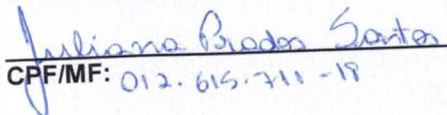 Juliana Prados Santos
CPF/MF: 012.615.711-18